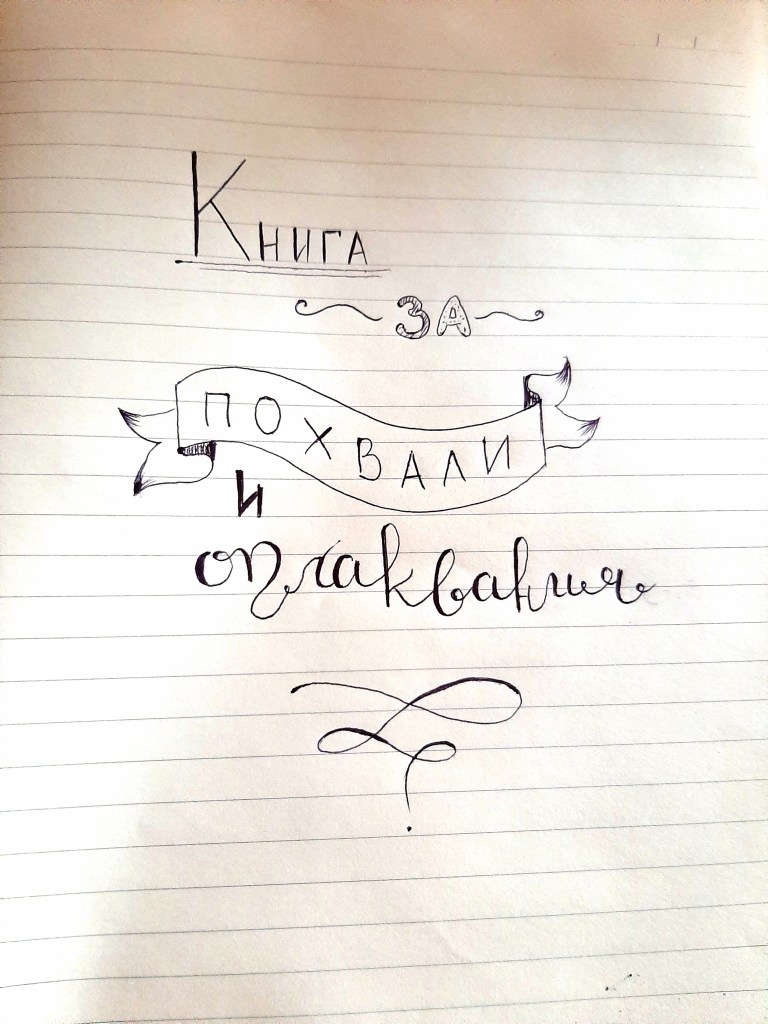 Книга
за
ПОХВАЛИ
И
оплаквания